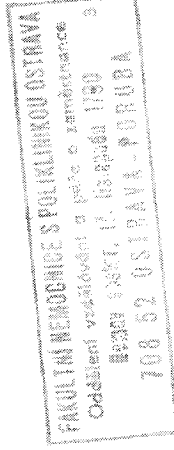 FAKULTNÍ NEMOCNICE S POLIKLINIKOU OSTRAVA
Oddělení vzdělávání a péče o zaměstnance
3
17. listopadu 1790
708 52 OSTRAVA-PORUBA